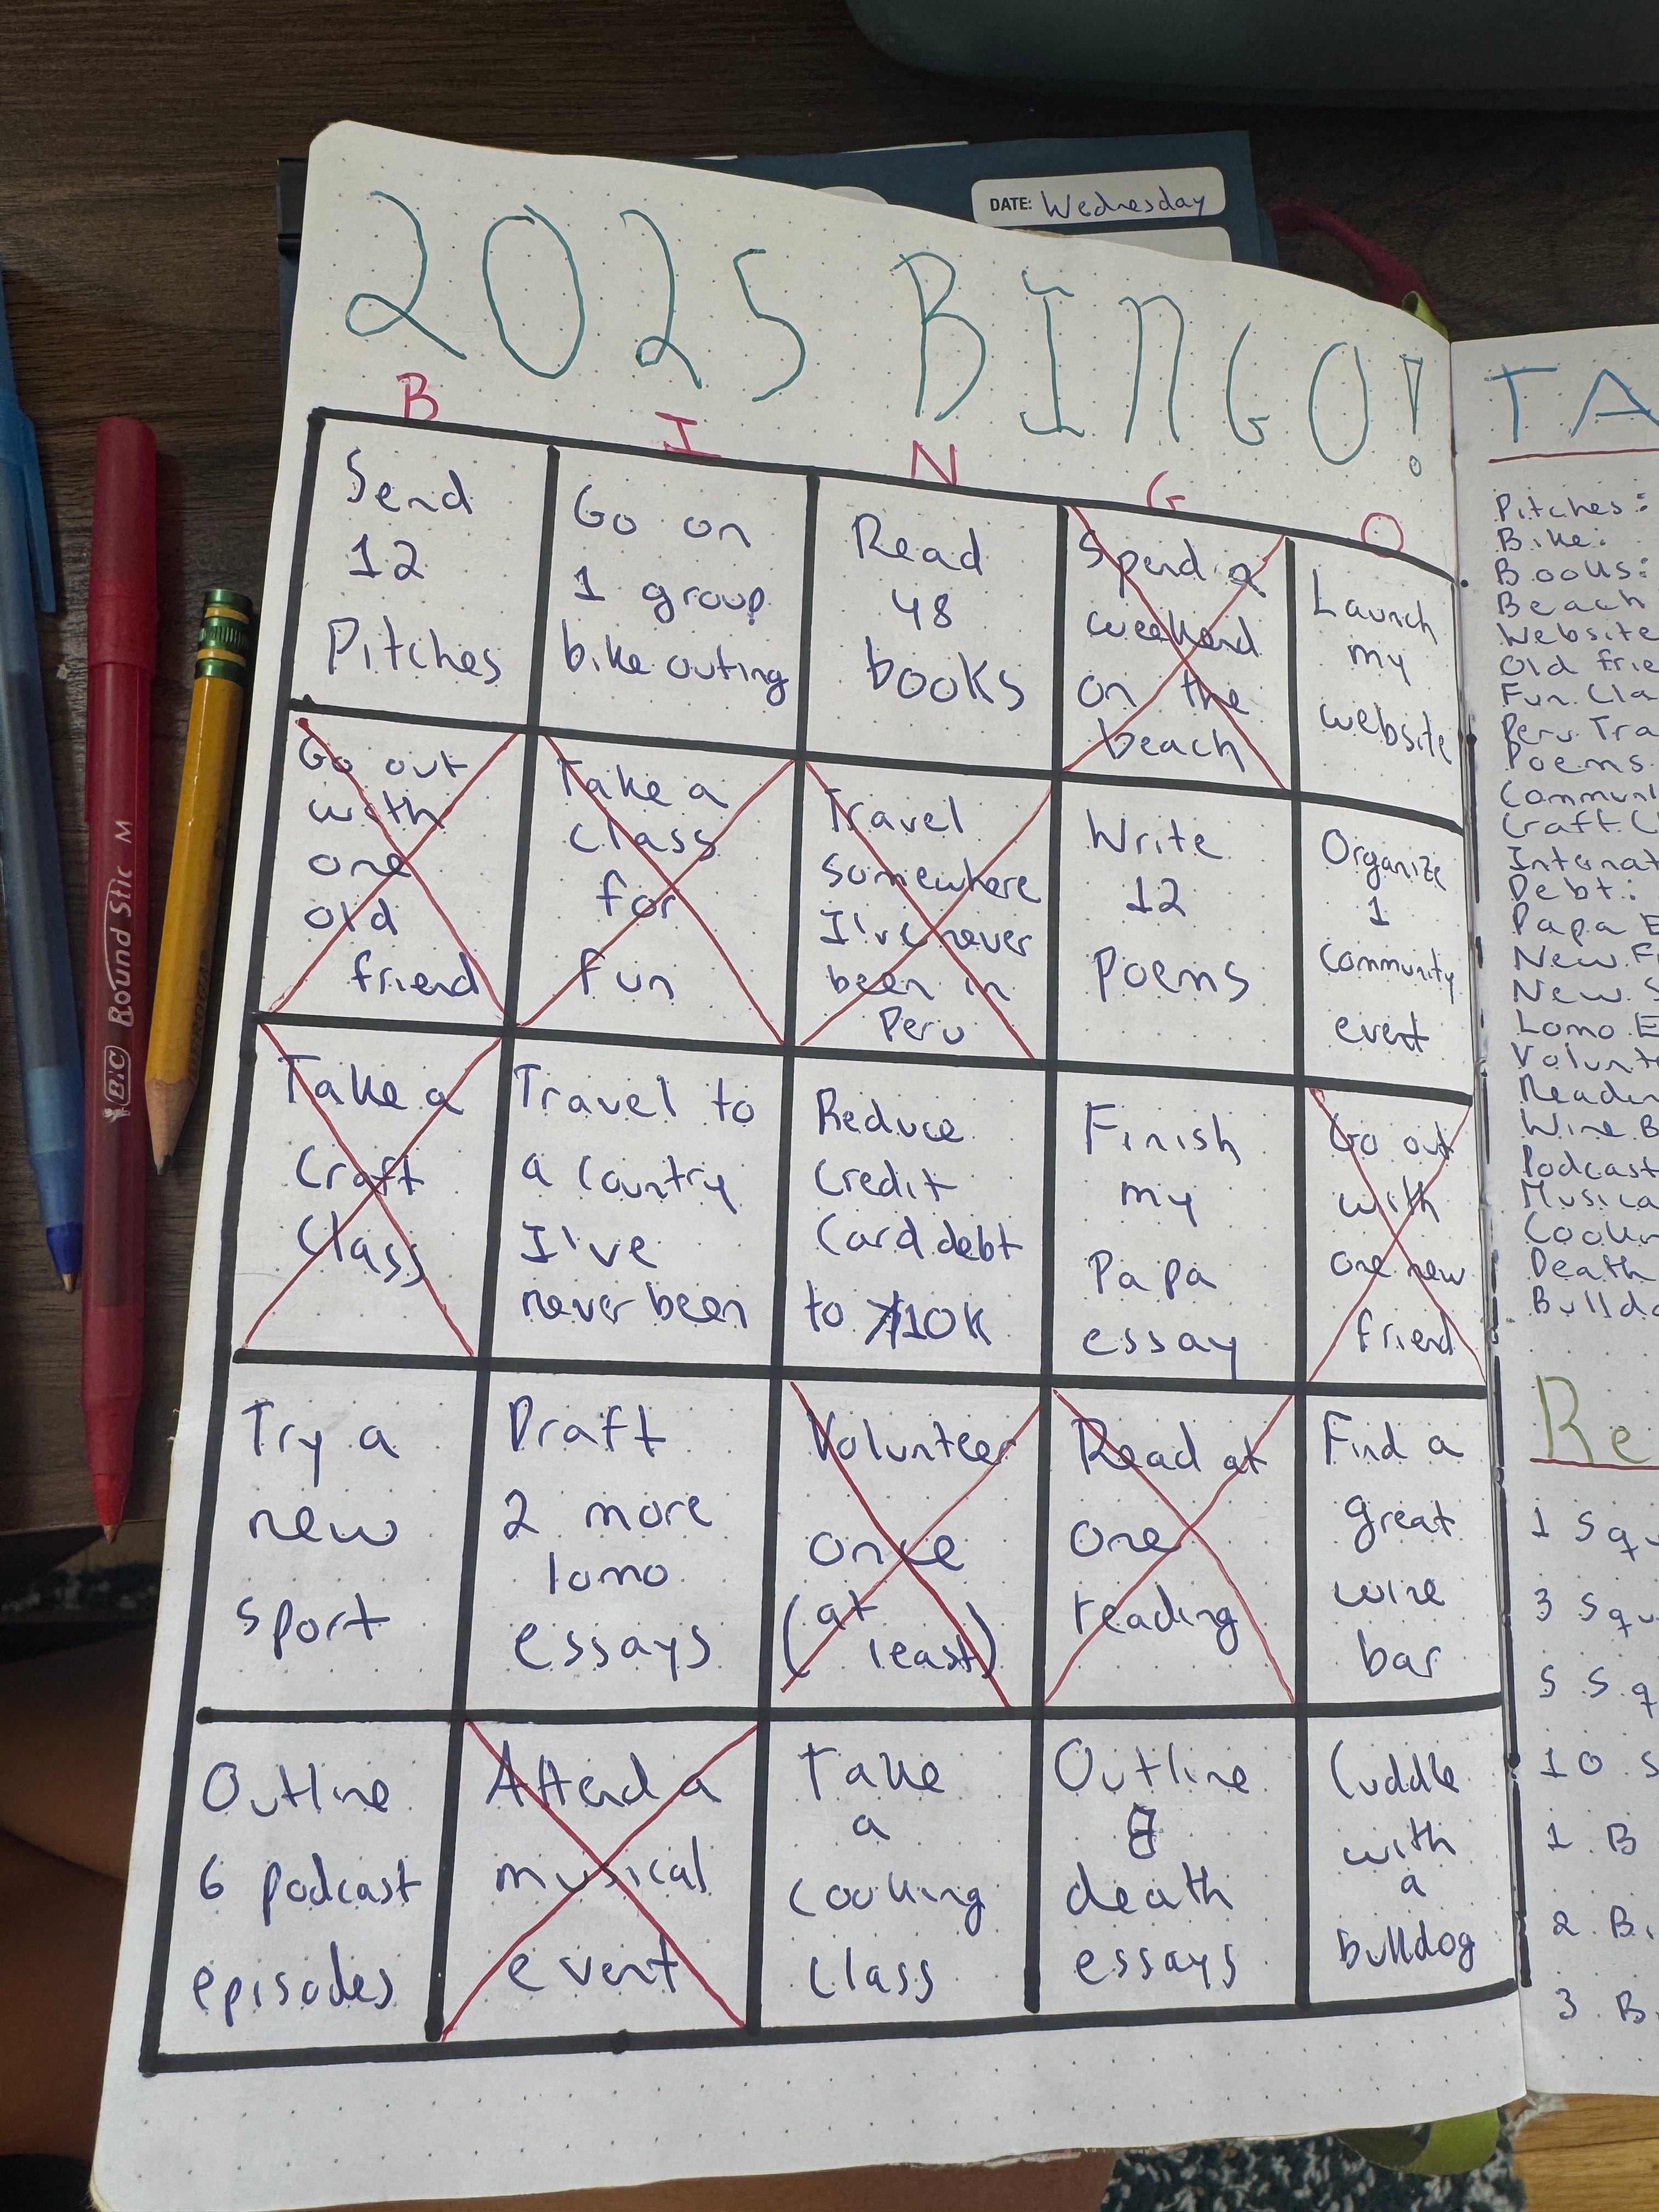 DATE: Wednesday
2025 BINGO!
B I N G O
Send
12
Pitches
Go on
1 group
bike outing
Read
48
books
Spend a
weekend
on the
beach
Launch
my
website
Go out
with
one
old
friend
Take a
class
for
fun
Travel
somewhere
I've never
been in
Peru
Write
12
Poems
Organize
1
community
event
Take a
Craft
Class
Travel to
a country
I've
never been
Reduce
credit
card debt
to 10K
Finish
my
Papa
essay
Go out
with
one new
friend
Try a
new
sport
Draft
2 more
lomo
essays
Volunteer
once
(at
least)
Read at
one
reading
Find a
great
wine
bar
Outline
6 podcast
episodes
Attend a
musical
event
Take
a
cooking
class
Outline
8
death
essays
Cuddle
with
a
bulldog
TA
Pitches:
Bike:
Books:
Beach
Website
Old frie
Fun Cla
Peru Tra
Poems
Communi
Craft C
Internat
Debt:
Papa E
New F
New S
Lomo E
Volunte
Readin
Wine B
Podcast
Musica
Cookin
Death
Bulldo
Re
1 Squ
3 Squ
5 Sq
10 S
1 B
2 Bi
3 B
BIC Round Stic M